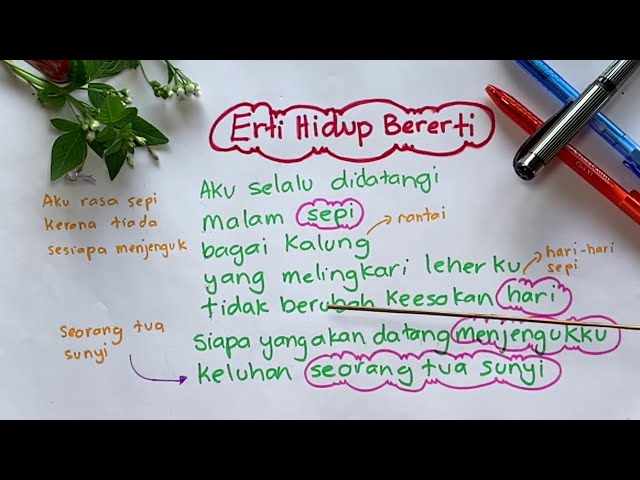 Erti Hidup Bererti
Aku selalu didatangi
malam sepi
bagai kalung
yang melingkari leherku
tidak berubah keesokan hari
siapa yang akan datang menjengukku
keluhan seorang tua sunyi
Aku rasa sepi
kerana tiada
sesiapa menjenguk
rantai
hari-hari
sepi
Seorang tua
sunyi